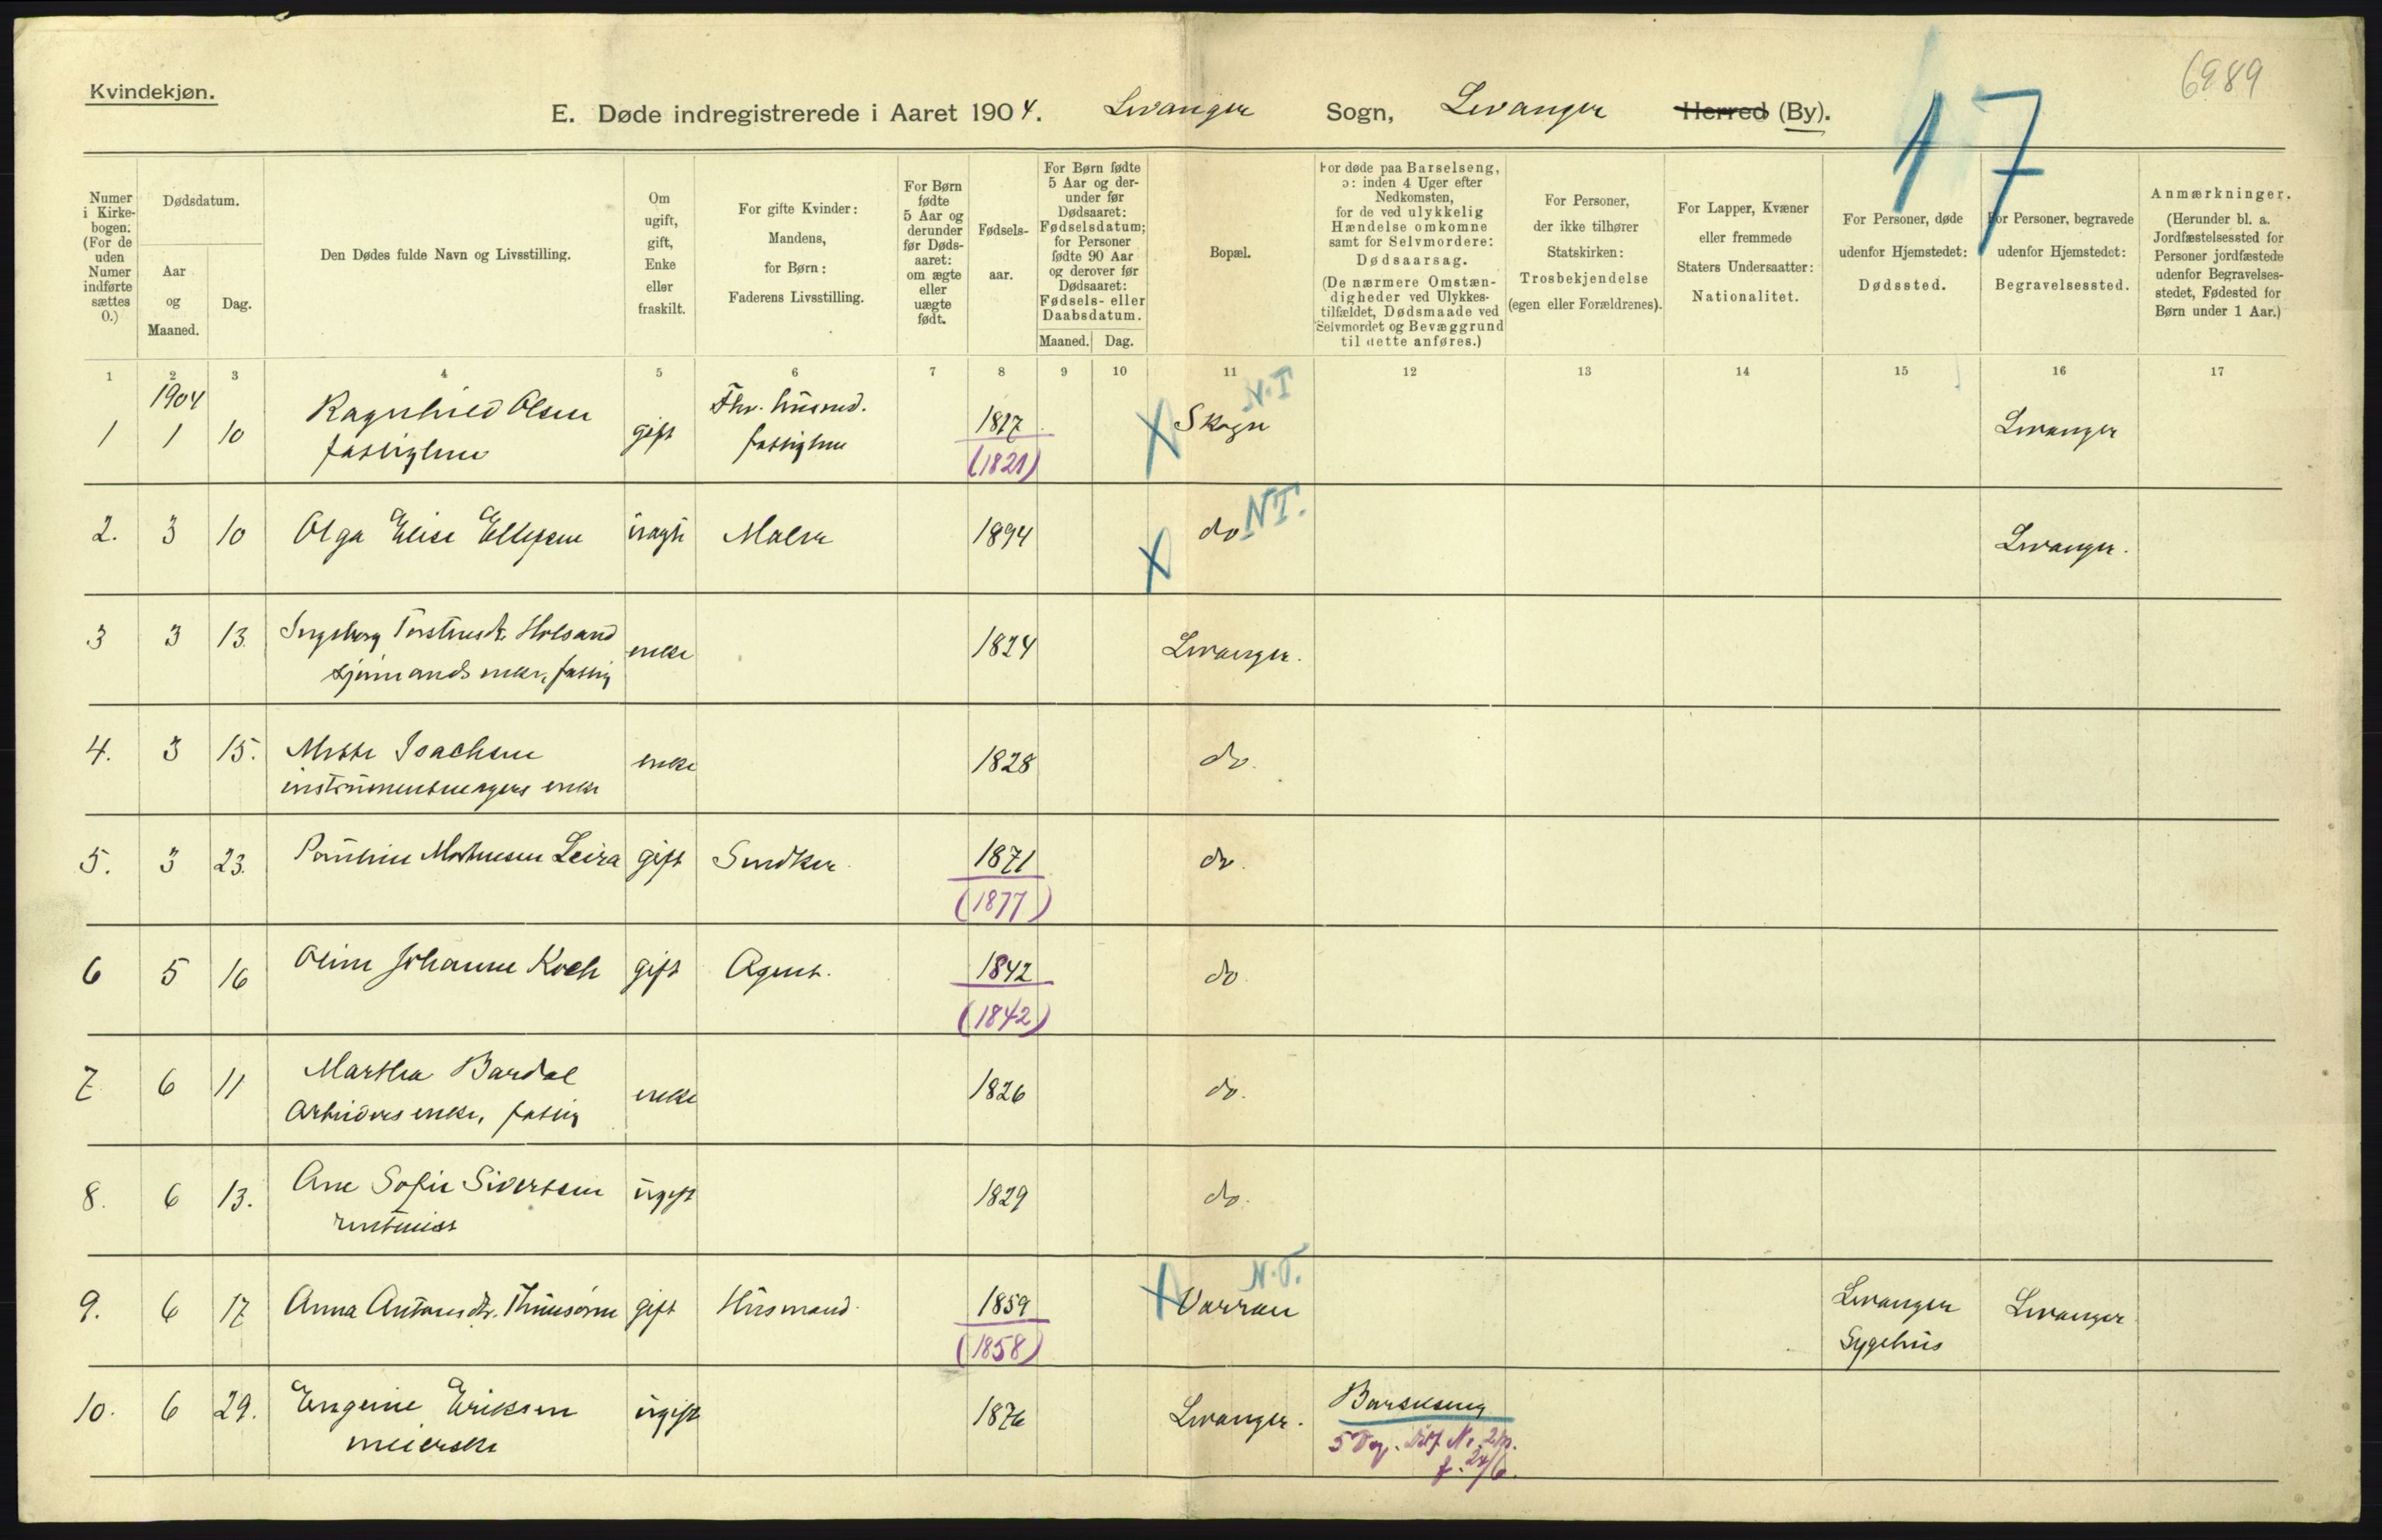 6989
Kvindekjøn.
E. Døde indregistrerede i Aaret 1904. Levanger Sogn, Levanger Herred (By).
17
Numer i Kirke-bogen. (For de uden Numer indførte sættes 0.)
Dødsdatum.
Aar og Maaned.
Dag.
Den Dødes fulde Navn og Livsstilling.
Om ugift, gift, Enke eller fraskilt.
For gifte Kvinder: Mandens, for Børn: Faderens Livsstilling.
For Børn fødte 5 Aar og derunder før Døds-aaret: om ægte eller uægte født.
Fødsels-aar.
For Børn fødte 5 Aar og der-under før Dødsaaret: Fødselsdatum; for Personer fødte 90 Aar og derover før Dødsaaret: Fødsels- eller Daabsdatum.
Maaned. Dag.
Bopæl.
For døde paa Barselseng, ɔ: inden 4 Uger efter Nedkomsten, for de ved ulykkelig Hændelse omkomne samt for Selvmordere: Dødsaarsag.
(De nærmere Omstæn-digheder ved Ulykkes-tilfældet, Dødsmaade ved Selvmordet og Bevæggrund til dette anføres.)
For Personer, der ikke tilhører Statskirken: Trosbekjendelse (egen eller Forældrenes).
For Lapper, Kvæner eller fremmede Staters Undersaatter: Nationalitet.
For Personer, døde udenfor Hjemstedet: Dødssted.
For Personer, begravede udenfor Hjemstedet: Begravelsessted.
Anmærkninger. (Herunder bl. a. Jordfæstelsessted for Personer jordfæstede udenfor Begravelses-stedet, Fødested for Børn under 1 Aar.)
1 2 3 4 5 6 7 8 9 10 11 12 13 14 15 16 17
1904
1 1 10 Ragnhild Olsen gift Fhv. husmd. 1817 Skogn N.T Levanger
fattiglem fattiglem (1821)
2. 3 10 Olga Elise Ellefsen uægte Maler 1894 do NT. Levanger.
3 3 13. Ingeborg Torstensdtr. Holsand enke 1824 Levanger.
enke, fattig
4. 3 15. Mette Isachsen enke 1828 do.
instrumentmagers enke
5. 3 23. Pauline Mortensen Leira gift Snedker 1871 do.
(1877)
6 5 16 Oline Johanne Koch gift Agent. 1842 do.
(1842)
7 6 11 Martha Bardal enke 1826 do.
Arbeiders enke, fattig
8. 6 13. Ane Sofie Sivertsen ugift 1829 do.
rentenist
9. 6 17 Anna Antonsdtr. gift Husmand. 1859 N.T. Værran Levanger Levanger
(1858) Sygehus
10. 6 29. Eugenie Eriksen ugift 1876 Levanger. Barselseng
meierske 5 Dg.
f. 24/6.